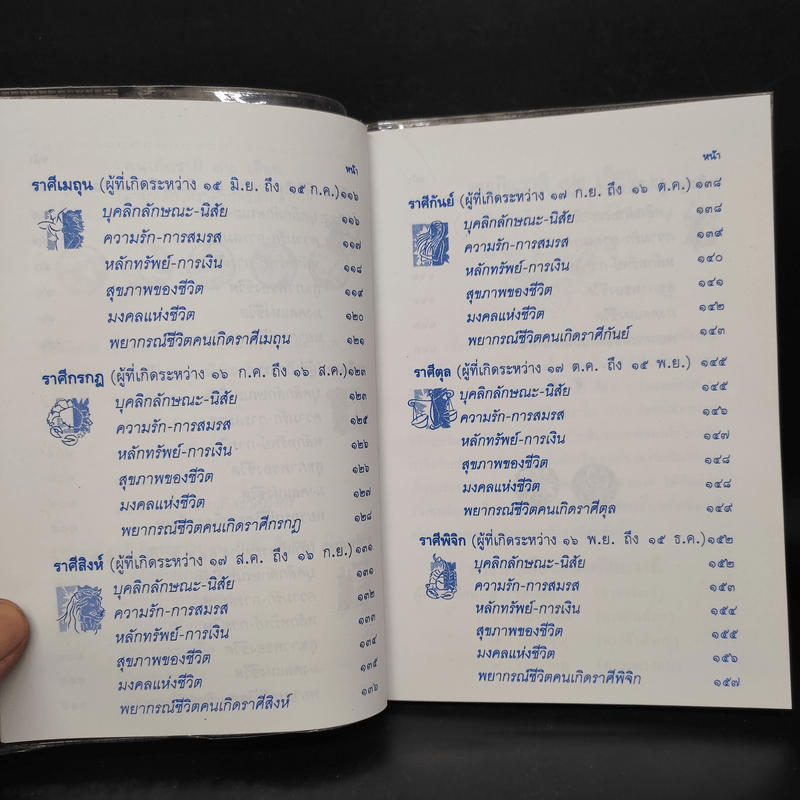 หน้า
ราศีเมถุน (ผู้ที่เกิดระหว่าง ๑๕ มิ.ย. ถึง ๑๕ ก.ค.) ๑๑๖
บุคลิกลักษณะ-นิสัย ๑๑๖
ความรัก-การสมรส ๑๑๗
หลักทรัพย์-การเงิน ๑๑๘
สุขภาพของชีวิต ๑๑๙
มงคลแห่งชีวิต ๑๒๐
พยากรณ์ชีวิตคนเกิดราศีเมถุน ๑๒๑
ราศีกรกฎ (ผู้ที่เกิดระหว่าง ๑๖ ก.ค. ถึง ๑๖ ส.ค.) ๑๒๓
บุคลิกลักษณะ-นิสัย ๑๒๓
ความรัก-การสมรส ๑๒๕
หลักทรัพย์-การเงิน ๑๒๖
สุขภาพของชีวิต ๑๒๖
มงคลแห่งชีวิต ๑๒๗
พยากรณ์ชีวิตคนเกิดราศีกรกฎ ๑๒๘
ราศีสิงห์ (ผู้ที่เกิดระหว่าง ๑๗ ส.ค. ถึง ๑๖ ก.ย.) ๑๓๑
บุคลิกลักษณะ-นิสัย ๑๓๑
ความรัก-การสมรส ๑๓๒
หลักทรัพย์-การเงิน ๑๓๓
สุขภาพของชีวิต ๑๓๔
มงคลแห่งชีวิต ๑๓๕
พยากรณ์ชีวิตคนเกิดราศีสิงห์ ๑๓๖
หน้า
ราศีกันย์ (ผู้ที่เกิดระหว่าง ๑๗ ก.ย. ถึง ๑๖ ต.ค.) ๑๓๘
บุคลิกลักษณะ-นิสัย ๑๓๘
ความรัก-การสมรส ๑๓๙
หลักทรัพย์-การเงิน ๑๔๐
สุขภาพของชีวิต ๑๔๑
มงคลแห่งชีวิต ๑๔๒
พยากรณ์ชีวิตคนเกิดราศีกันย์ ๑๔๓
ราศีตุล (ผู้ที่เกิดระหว่าง ๑๗ ต.ค. ถึง ๑๕ พ.ย.) ๑๔๕
บุคลิกลักษณะ-นิสัย ๑๔๕
ความรัก-การสมรส ๑๔๖
หลักทรัพย์-การเงิน ๑๔๗
สุขภาพของชีวิต ๑๔๘
มงคลแห่งชีวิต ๑๔๘
พยากรณ์ชีวิตคนเกิดราศีตุล ๑๔๙
ราศีพิจิก (ผู้ที่เกิดระหว่าง ๑๖ พ.ย. ถึง ๑๕ ธ.ค.) ๑๕๒
บุคลิกลักษณะ-นิสัย ๑๕๒
ความรัก-การสมรส ๑๕๓
หลักทรัพย์-การเงิน ๑๕๔
สุขภาพของชีวิต ๑๕๕
มงคลแห่งชีวิต ๑๕๖
พยากรณ์ชีวิตคนเกิดราศีพิจิก ๑๕๗